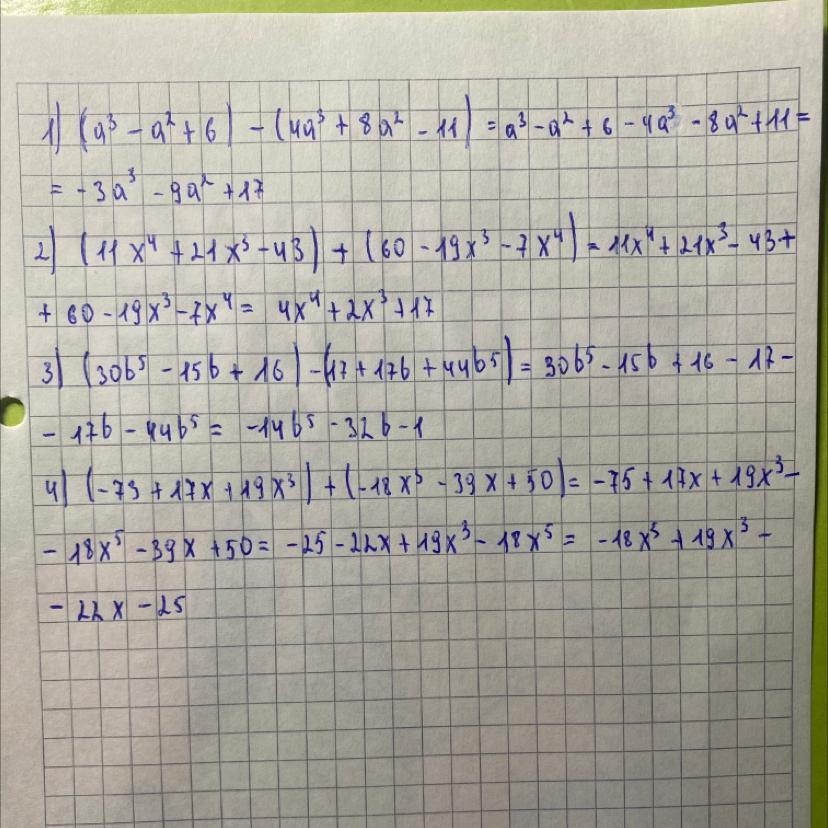 1) (a³ - a² + 6) - (4a³ + 8a² - 11) = a³ - a² + 6 - 4a³ - 8a² + 11 =
= -3a³ - 9a² + 17
2) (11x⁴ + 21x³ - 43) + (60 - 19x³ - 7x⁴) = 11x⁴ + 21x³ - 43 +
+ 60 - 19x³ - 7x⁴ = 4x⁴ + 2x³ + 17
3) (30b⁵ - 15b + 16) - (17 + 17b + 44b⁵) = 30b⁵ - 15b + 16 - 17 -
- 17b - 44b⁵ = -14b⁵ - 32b - 1
4) (-73 + 17x + 19x³) + (-18x⁵ - 39x + 50) = -75 + 17x + 19x³ -
- 18x⁵ - 39x + 50 = -25 - 22x + 19x³ - 18x⁵ = -18x⁵ + 19x³ -
- 22x - 25